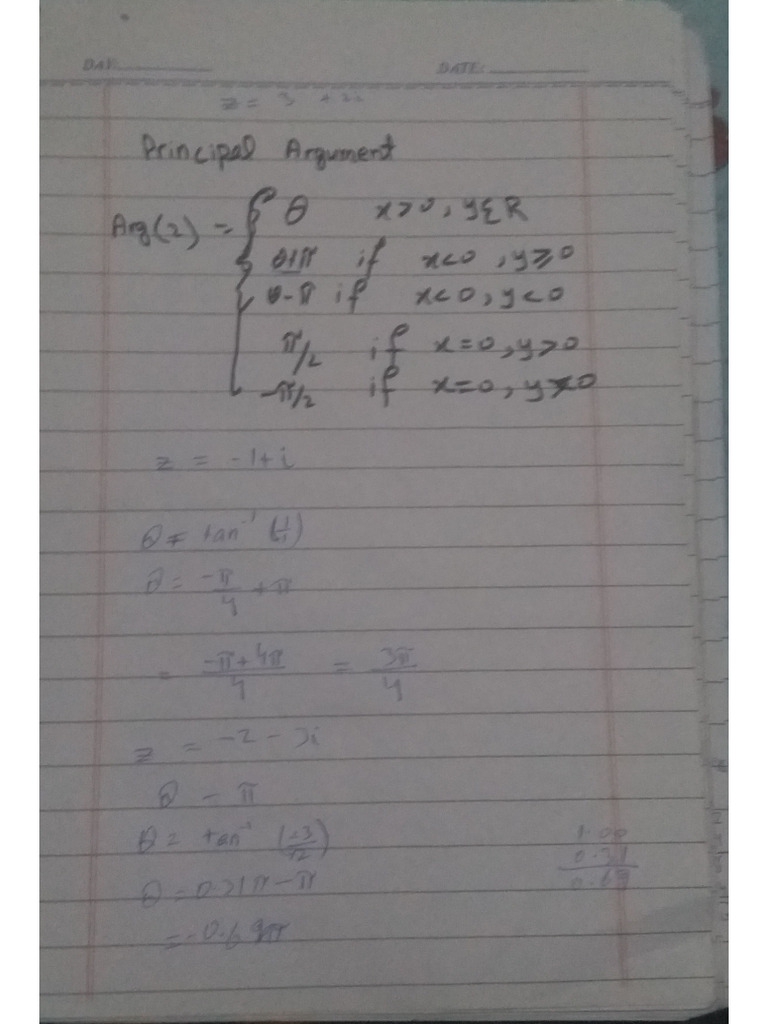 DAY:
DATE:
z = 3 + 2i
Principal Argument
Arg(z) = { θ x>0, y∈R
θ+π if x<0, y≥0
θ-π if x<0, y<0
π/2 if x=0, y>0
-π/2 if x=0, y<0
z = -1+i
θ = tan⁻¹ (1/-1)
θ = -π/4 + π
= -π+4π/4 = 3π/4
z = -2 - 3i
θ - π
θ = tan⁻¹ (-3/-2)
1.00
0.31
0.69
θ = 0.31π - π
= -0.69π